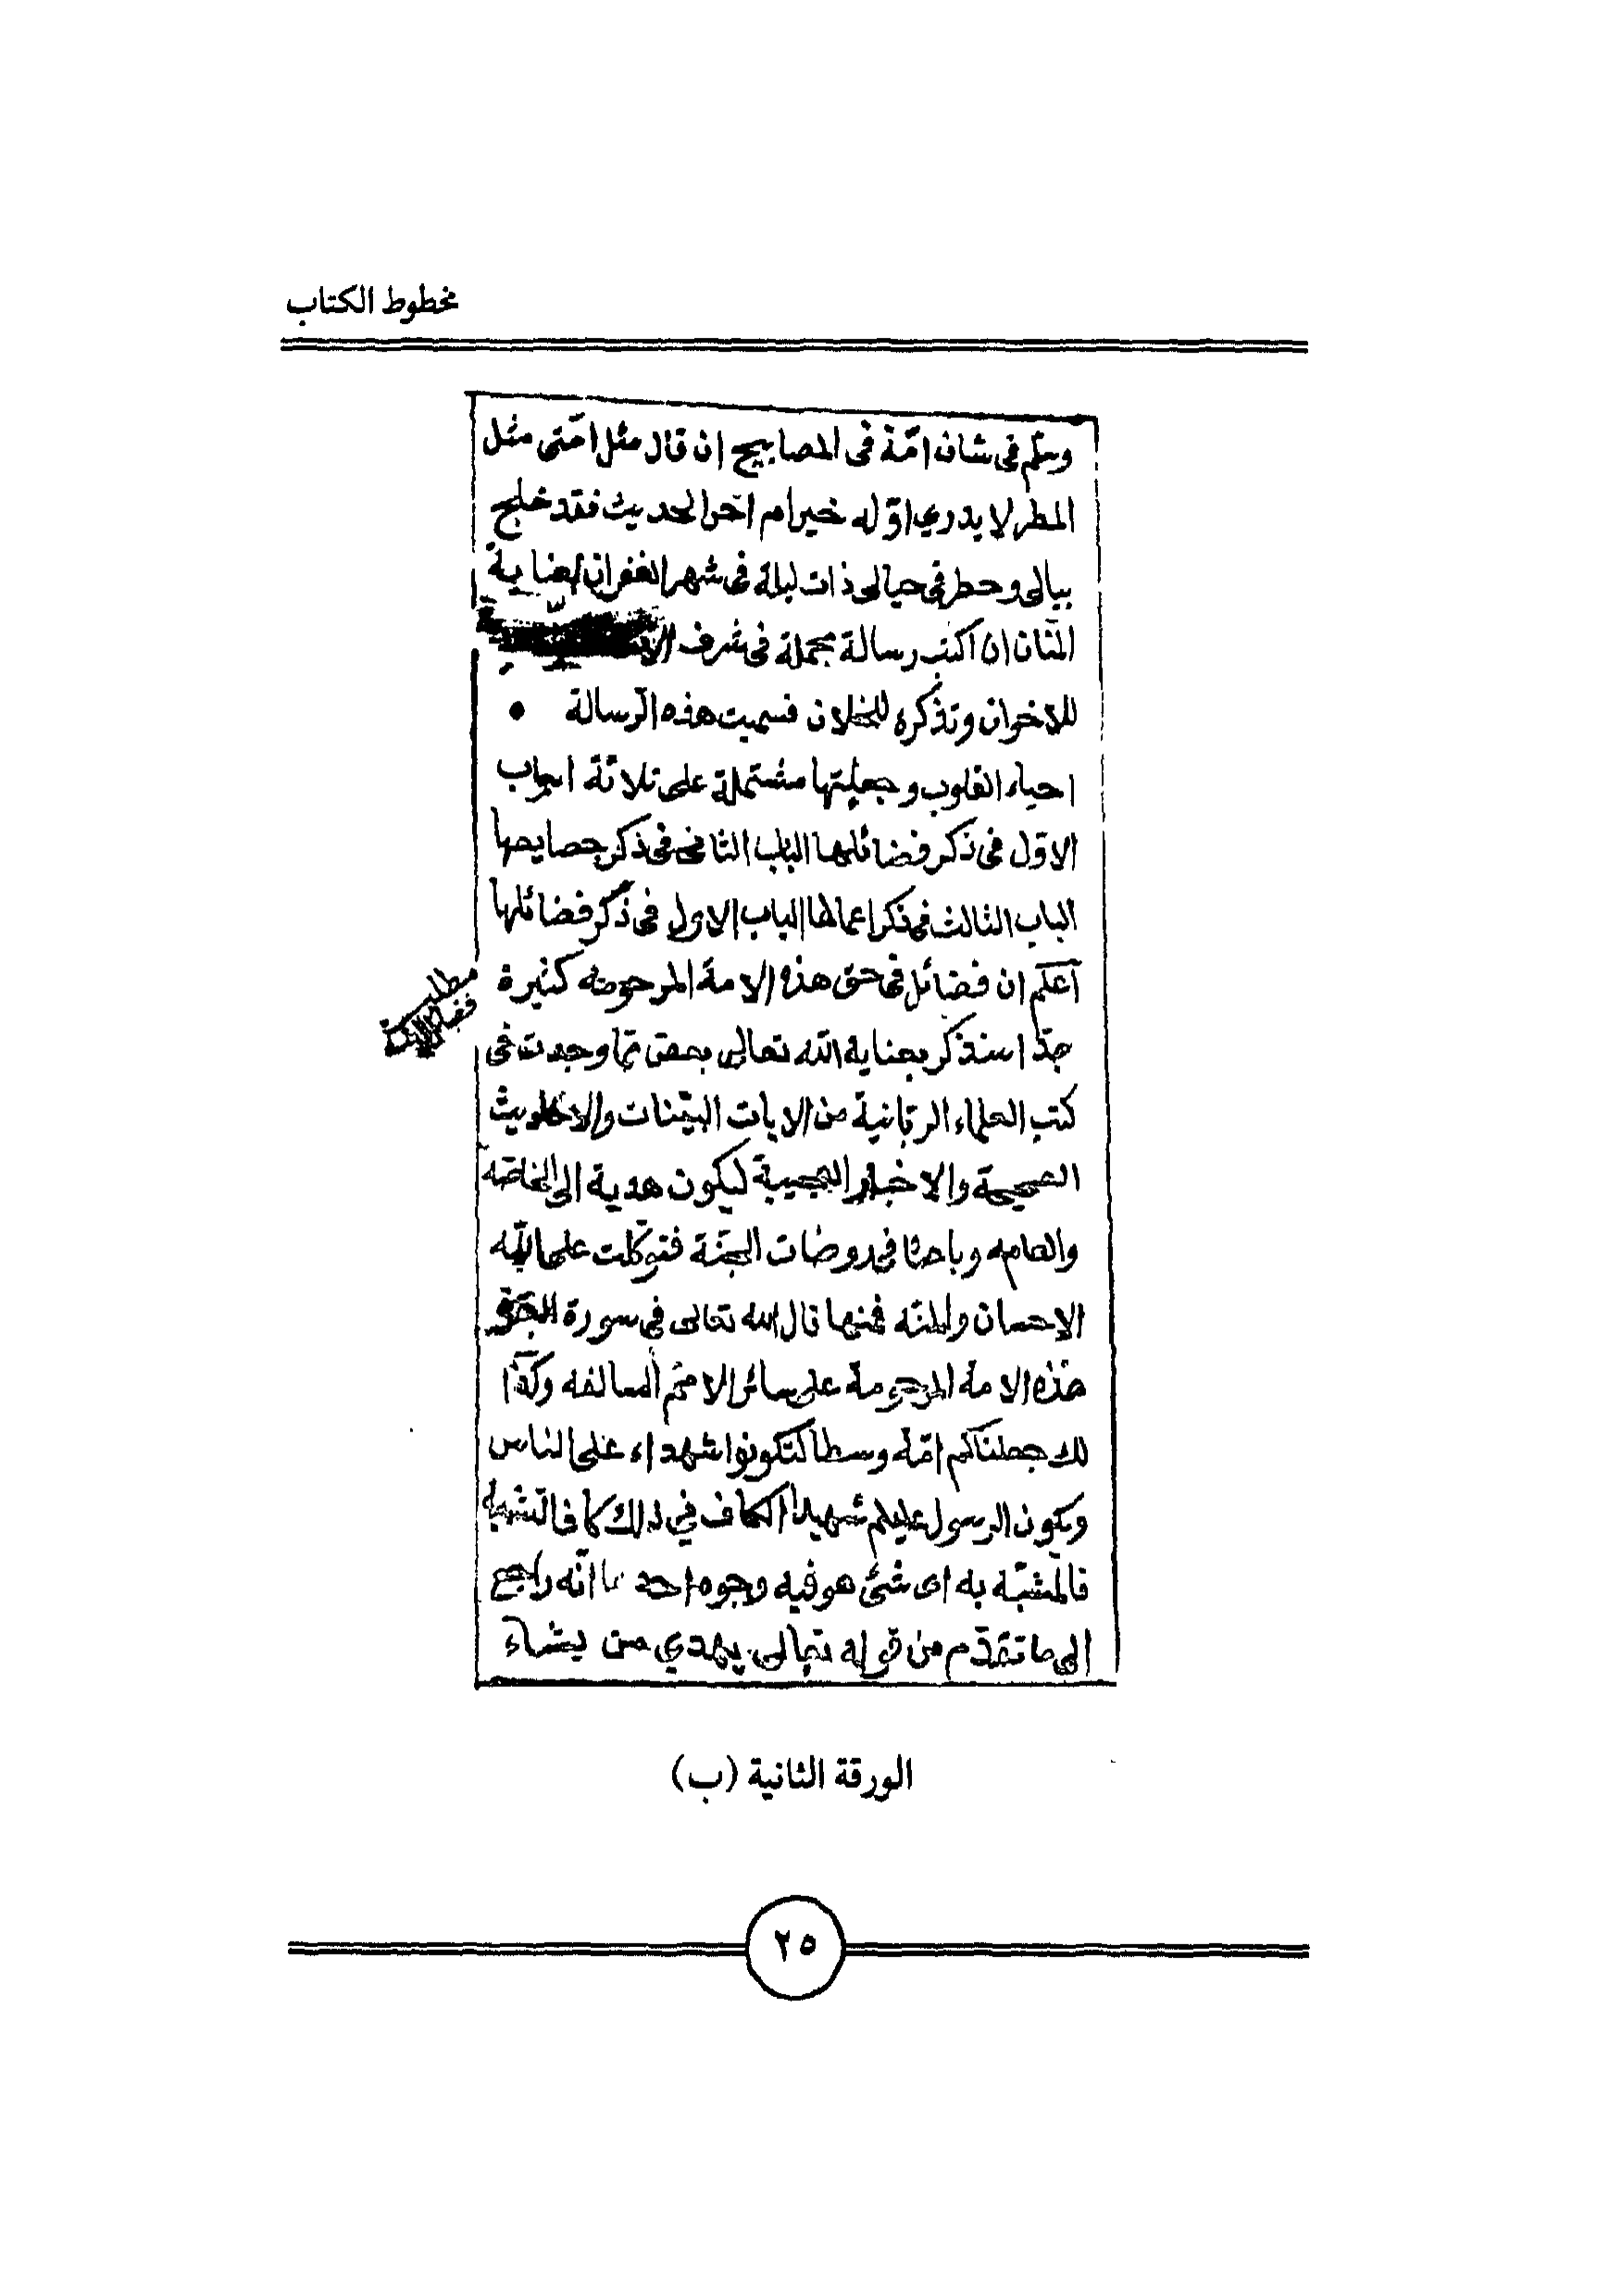 مخطوط الكتاب
وسلّم في شان امّة في المصابيح ان قال مثل امّتي مثل
المطر لا يدري اوّله خير ام آخر الحديث فقد خلج
ببالي وخطر في خيالي ذات ليلة في شهر الغفران لعناية
المنّان ان اكتب رسالة مجملة في شرف
للاخوان وتذكره للخلان فسميت هذه الرّسالة •
احياء القلوب وجعلتها مشتملة على ثلاثة ابواب
الاوّل في ذكر فضائلها الباب الثاني في ذكر خصايصها
الباب الثالث في ذكر اعمالها الباب الاول في ذكر فضائلها
آعلم ان فضائل في حق هذه الامة المرحومه كثيرة
مطلب فضائل الامة
جدّا سنذكر بعناية الله تعالى بعض ممّا وجدت في
كتب العلماء الربّانية من الايات البيّنات والاحاديث
الصحيحة والاخبار العجيبة ليكون هدية الى الخاصّة
والعامه وباحثا في روضات الجنّة فتوكّلت على الله
الاحسان والمنّه فمنها قال الله تعالى في سورة البقرة
هذه الامة المرحومة على سائر الامم السالفه وكذا
لك جعلناكم امّة وسطا لتكونوا شهداء على الناس
ويكون الرسول عليكم شهيدا الكاف في ذلك كاف التشبيه
فالمشبّه به اى شئ هو فيه وجوه احدها انّه راجع
الى ما تقدّم من قوله تعالى يهدي من يشاء
الورقة الثانية (ب)
٢٥